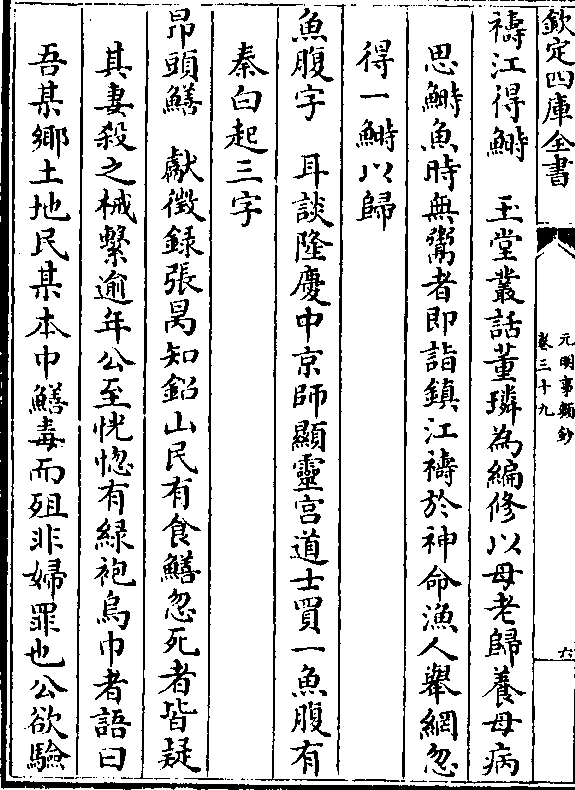 欽定四庫全書
元明事類鈔
卷三十九
六
禱江得鰣　玉堂叢話董璘為編修以母老歸養母病
思鰣魚時無鬻者即詣鎮江禱於神命漁人舉網忽
得一鰣以歸
魚腹字　耳談隆慶中京師顯靈宫道士買一魚腹有
秦白起三字
昂頭鱔　獻徵錄張昺知鉛山民有食鱔忽死者皆疑
其妻殺之械繫逾年公至恍惚有緑袍烏巾者語曰
吾某鄉土地民某本中鱔毒而殂非婦罪也公欲驗